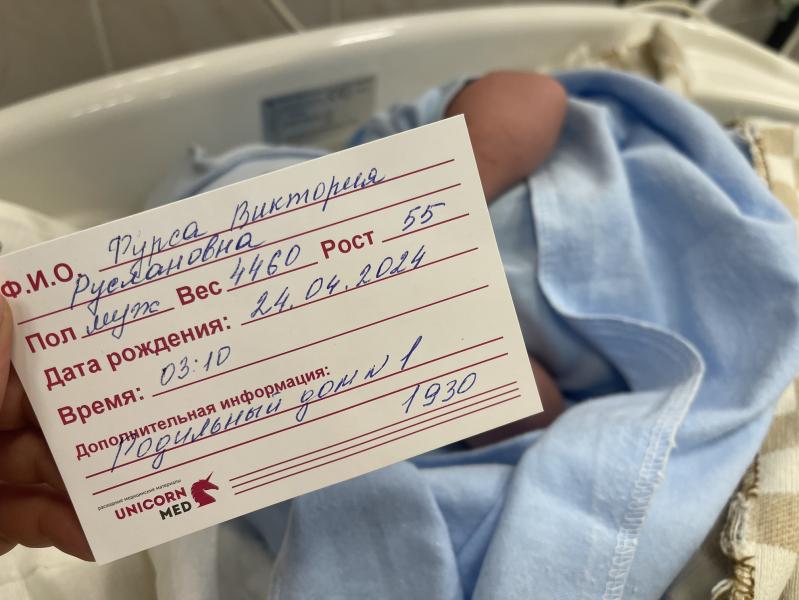 Ф.И.О. Фурса Виктория
Руслановна
Пол муж Вес 4460 Рост 55
Дата рождения: 24.04.2024
Время: 03:10
Дополнительная информация:
Родильный дом № 1
1930
расходные медицинские материалы
UNICORN
MED